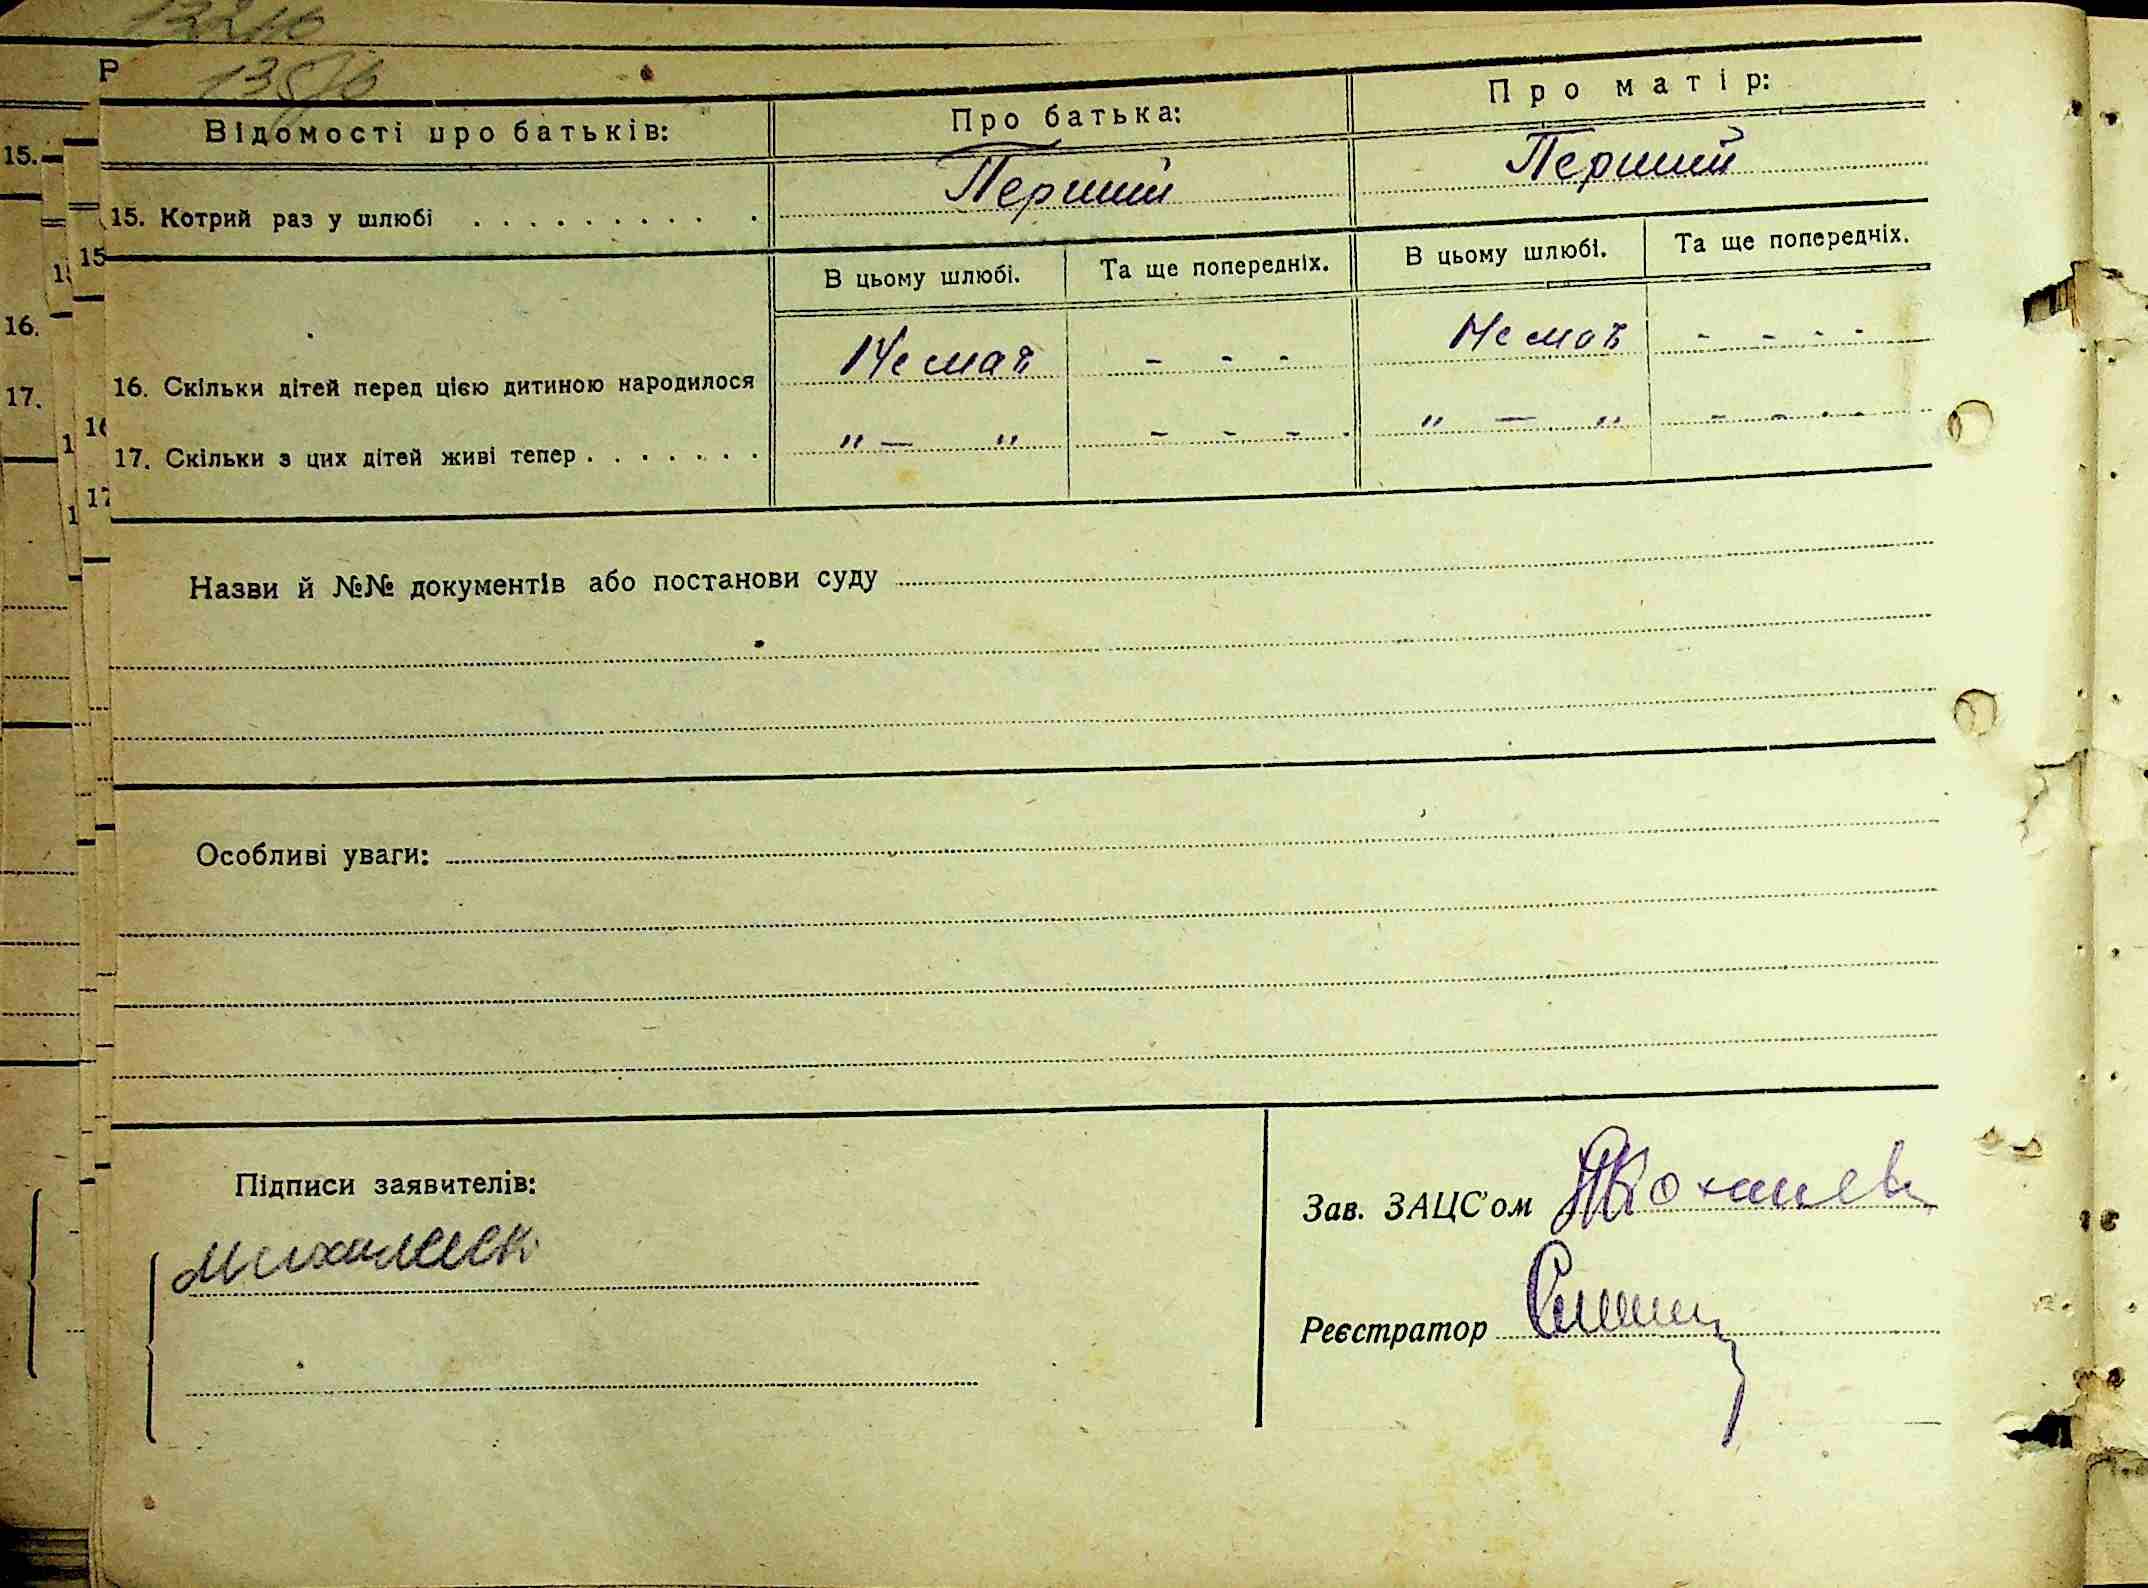 Відомості про батьків:
Про батька:
Про матір:
15. Котрий раз у шлюбі
Перший
Перший
В цьому шлюбі.
Та ще попередніх.
В цьому шлюбі.
Та ще попередніх.
16. Скільки дітей перед цією дитиною народилося
Немає
- - -
Немає
- - - -
17. Скільки з цих дітей живі тепер
" — "
- - - -
" — "
- - - -
Назви й №№ документів або постанови суду
Особливі уваги:
Підписи заявителів:
Зав. ЗАЦС'ом
Реєстратор
15.
16.
17.